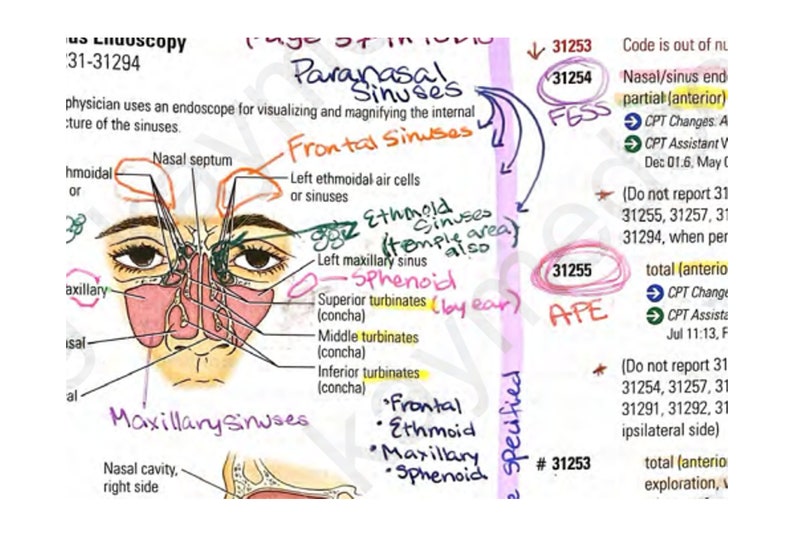 Endoscopy
31-31294
Page
Paranasal
Sinuses
physician uses an endoscope for visualizing and magnifying the internal
cture of the sinuses.
Frontal Sinuses
hmoidal
or
Nasal septum
Left ethmoidal air cells
or sinuses
Ethmoid
Sinuses
(temple area)
also
Left maxillary sinus
axillary
Sphenoid
(by ear)
Superior turbinates
(concha)
Middle turbinates
(concha)
Inferior turbinates
(concha)
asal
al
Maxillary sinuses
• Frontal
• Ethmoid
• Maxillary
• Sphenoid
Nasal cavity,
right side
specified
31253 Code is out of nu
31254 Nasal/sinus end
partial (anterior)
FESS
CPT Changes: A
CPT Assistant V
Dec 01:6, May 0
(Do not report 31
31255, 31257, 31
31294, when per
31255 total (anterio
APE
CPT Change
CPT Assista
Jul 11:13, F
(Do not report 31
31254, 31257, 31
31291, 31292, 31
ipsilateral side)
# 31253 total (anterio
exploration, v
kaymed